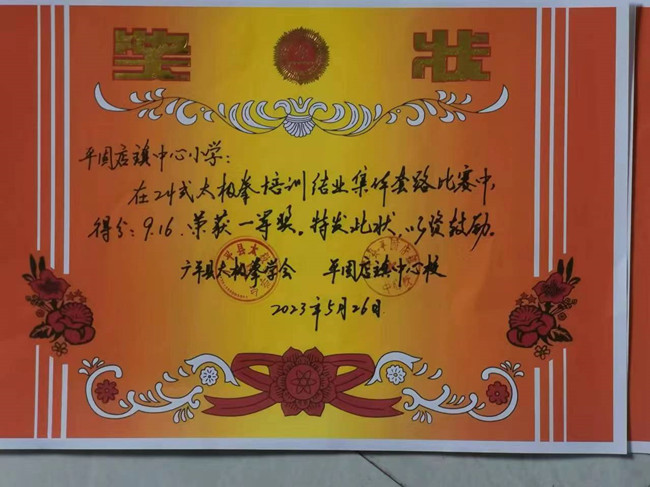 奖状
平固店镇中心小学：
在24式太极拳培训结业集体套路比赛中，
得分：9.16.荣获一等奖。特发此状，以资鼓励。
广平县太极拳学会 平固店镇中心校
2023年5月26日